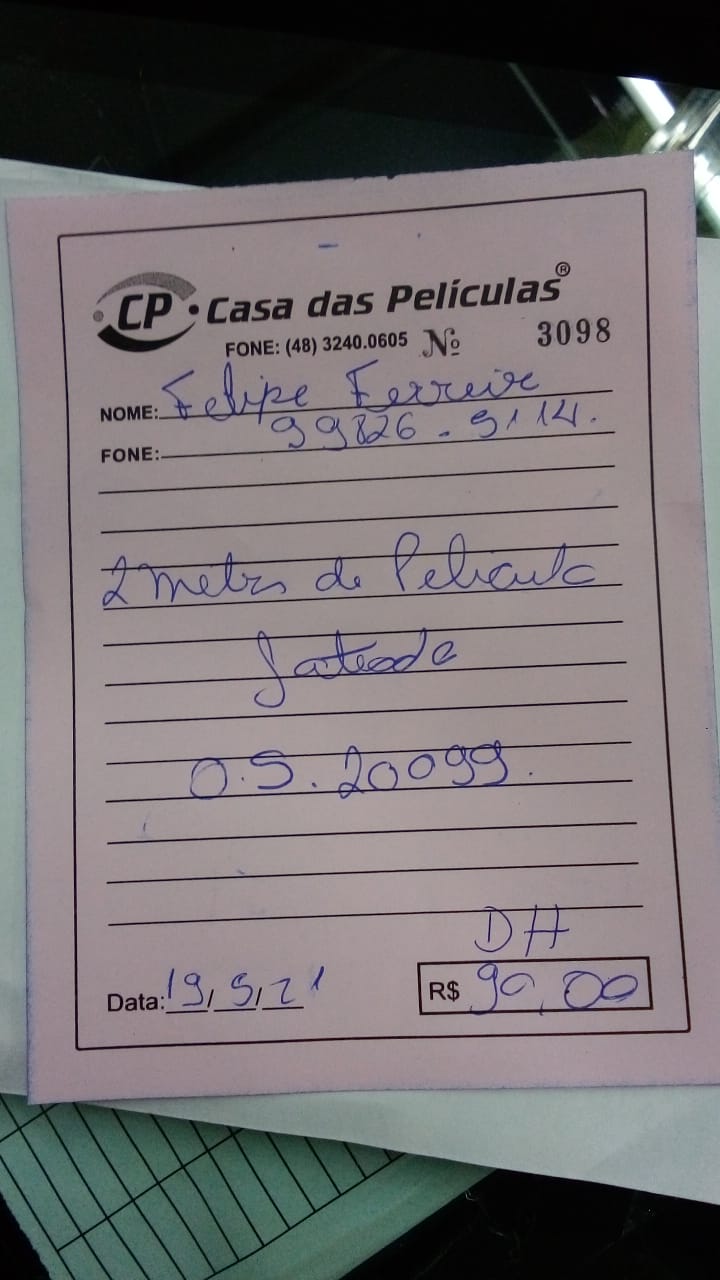 CP • Casa das Películas®
FONE: (48) 3240.0605 Nº 3098
NOME: Felipe Ferreira
FONE: 99826-9114.
2 metros de Pelicula
Jateada
O.S. 20099.
DH
Data: 19/5/21 R$ 90,00